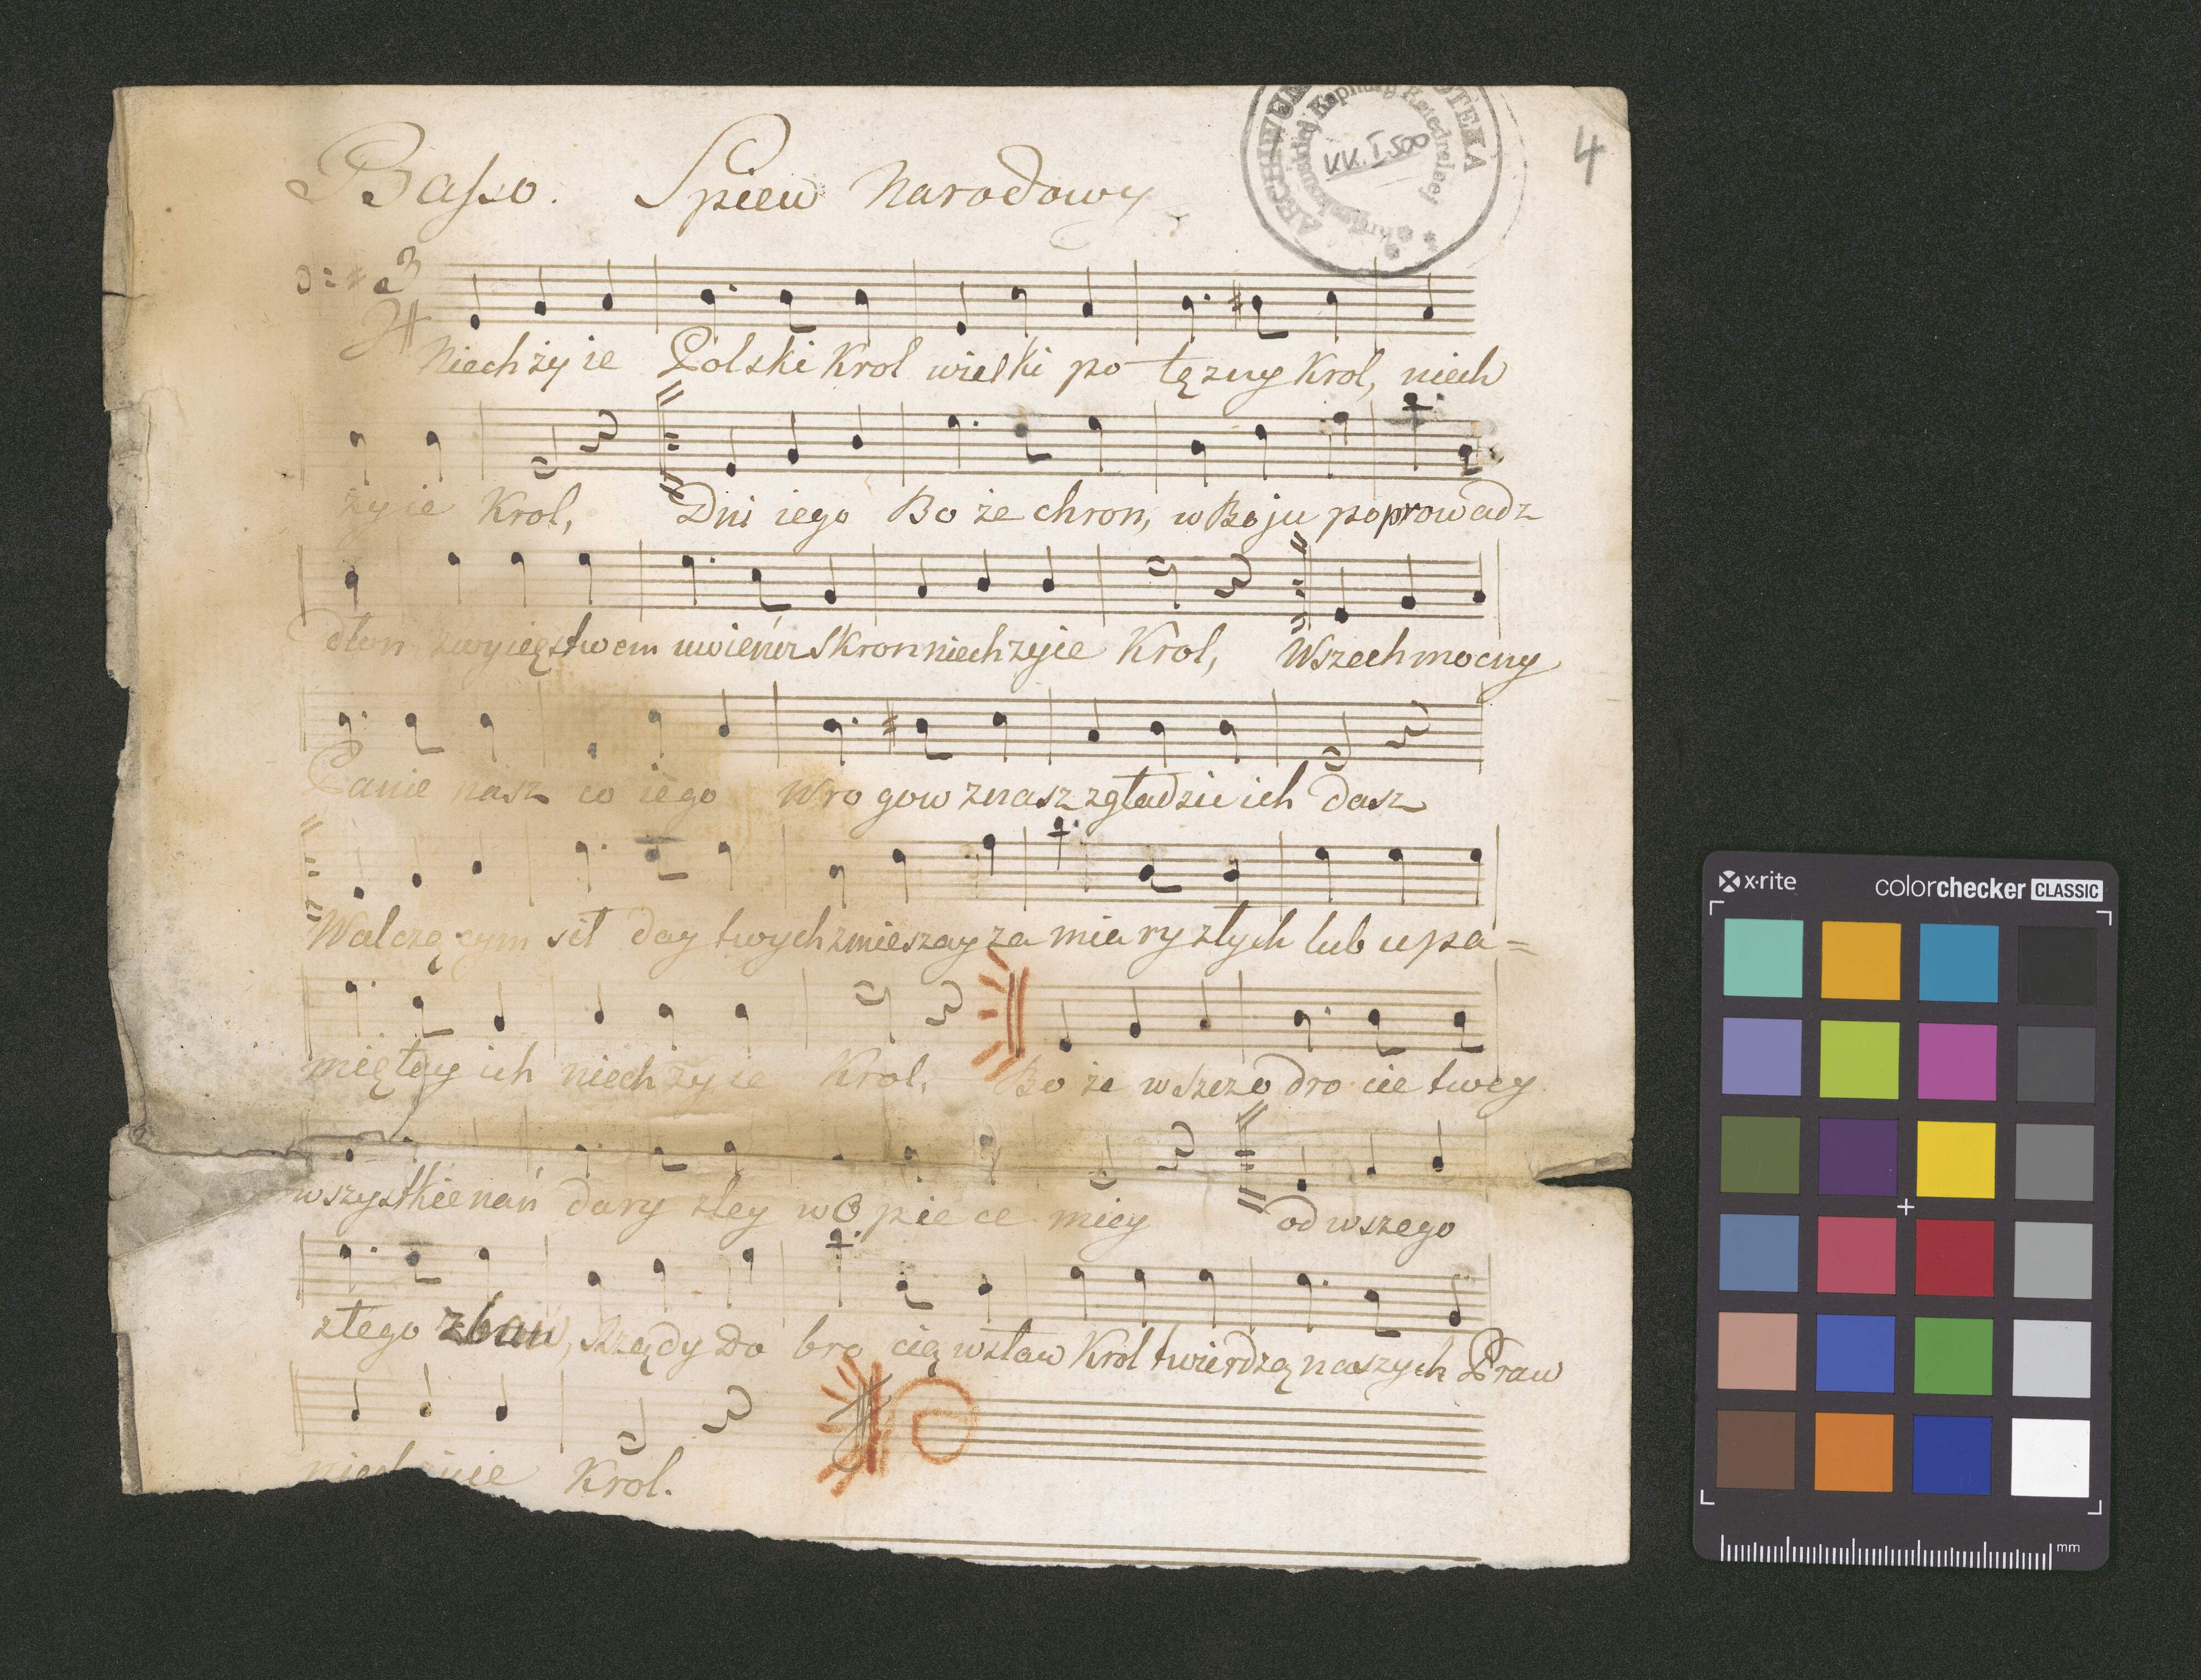 Basso. Spiew Narodowy
4
KK. I. 500
3
Niech ży ie Polski Krol wielki po tęzny Krol, niech
żyie Krol, Dni iego Bo że chron, w Boju poprowadz
dłon zwycięstwem uwieńcz Skron niech zyie Krol, Wszechmocny
Panie nasz co iego Wro gow znasz zgładzic ich dasz
Walczę cym sił day twych zmieszay za mia ry złych lub upa =
mię tay ich niech ży ie Krol, Bo że w szczo dro cie twey
wszystkie nań dary zley w O pie ce miey od wszego
złego zbaw, Rządy do bro cią wsław Krol twierdzą naszych Praw
niech żyie Krol.
x·rite colorchecker CLASSIC
mm